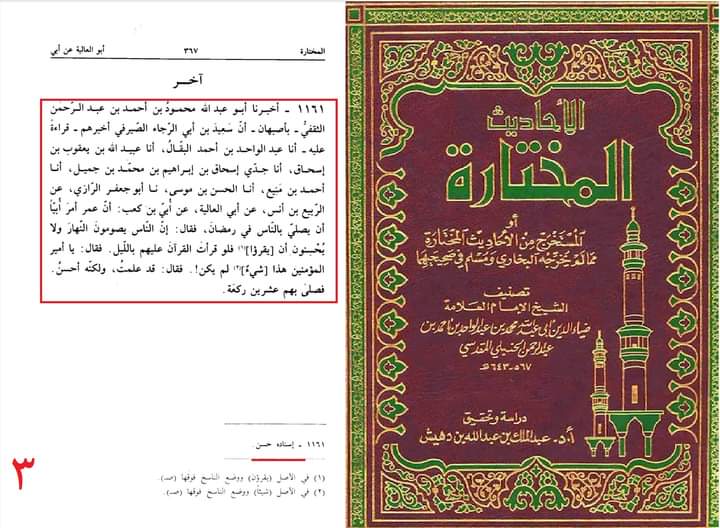 المختارة ٣٦٧ أبو العالية عن أبي
آخــر
١١٦١ - أخبرنا أبو عبد الله محمودُ بن أحمد بن عبد الرَّحمن
الثقفيُّ - بأصبهان - أنَّ سَعيدَ بن أبي الرَّجاء الصَّيرفي أخبرهم - قراءةً
عليه - أنا عبد الواحد بن أحمد البقَّال، أنا عبيد الله بن يعقوب بن
إسحاق، أنا جدّي إسحاق بن إبراهيم بن محمَّد بن جميل، أنا
أحمد بن مَنيع، أنا الحسن بن موسى، نا أبو جعفر الرَّازي، عن
الرَّبيع بن أنس، عن أبي العالية، عن أُبيّ بن كعب: أنَّ عمر أمرَ أُبيًّا
أن يصلّيَ بالنَّاس في رمضانَ، فقال: إنَّ النَّاس يصومون النَّهارَ ولا
يُحْسنون أن [يقرؤا](١) فلو قرأتَ القرآنَ عليهم باللَّيل. فقال: يا أمير
المؤمنين هذا [شيءٌ](٢) لم يكن!. فقال: قد علمتُ، ولكنَّه أحسنُ.
فصلَّى بهم عشرين ركعَة.
١١٦١ - إسناده حسن.
(١) في الأصل (يقرؤن) ووضع الناسخ فوقها (صـ).
(٢) في الأصل (شيئا) ووضع الناسخ فوقها (صـ).
٣
الأحاديث
المختارة
أو
المستخرج من الأحاديث المختارة
مما لم يخرجه البخاري ومسلم في صحيحيهما
تصنيف
الشيخ الإمام العلامة
ضياء الدين أبي عبد الله محمد بن عبد الواحد بن أحمد بن
عبد الرحمن الحنبلي المقدسي
٥٦٧-٦٤٣هـ
دراسة وتحقيق
أ.د. عبد الملك بن عبد الله بن دهيش